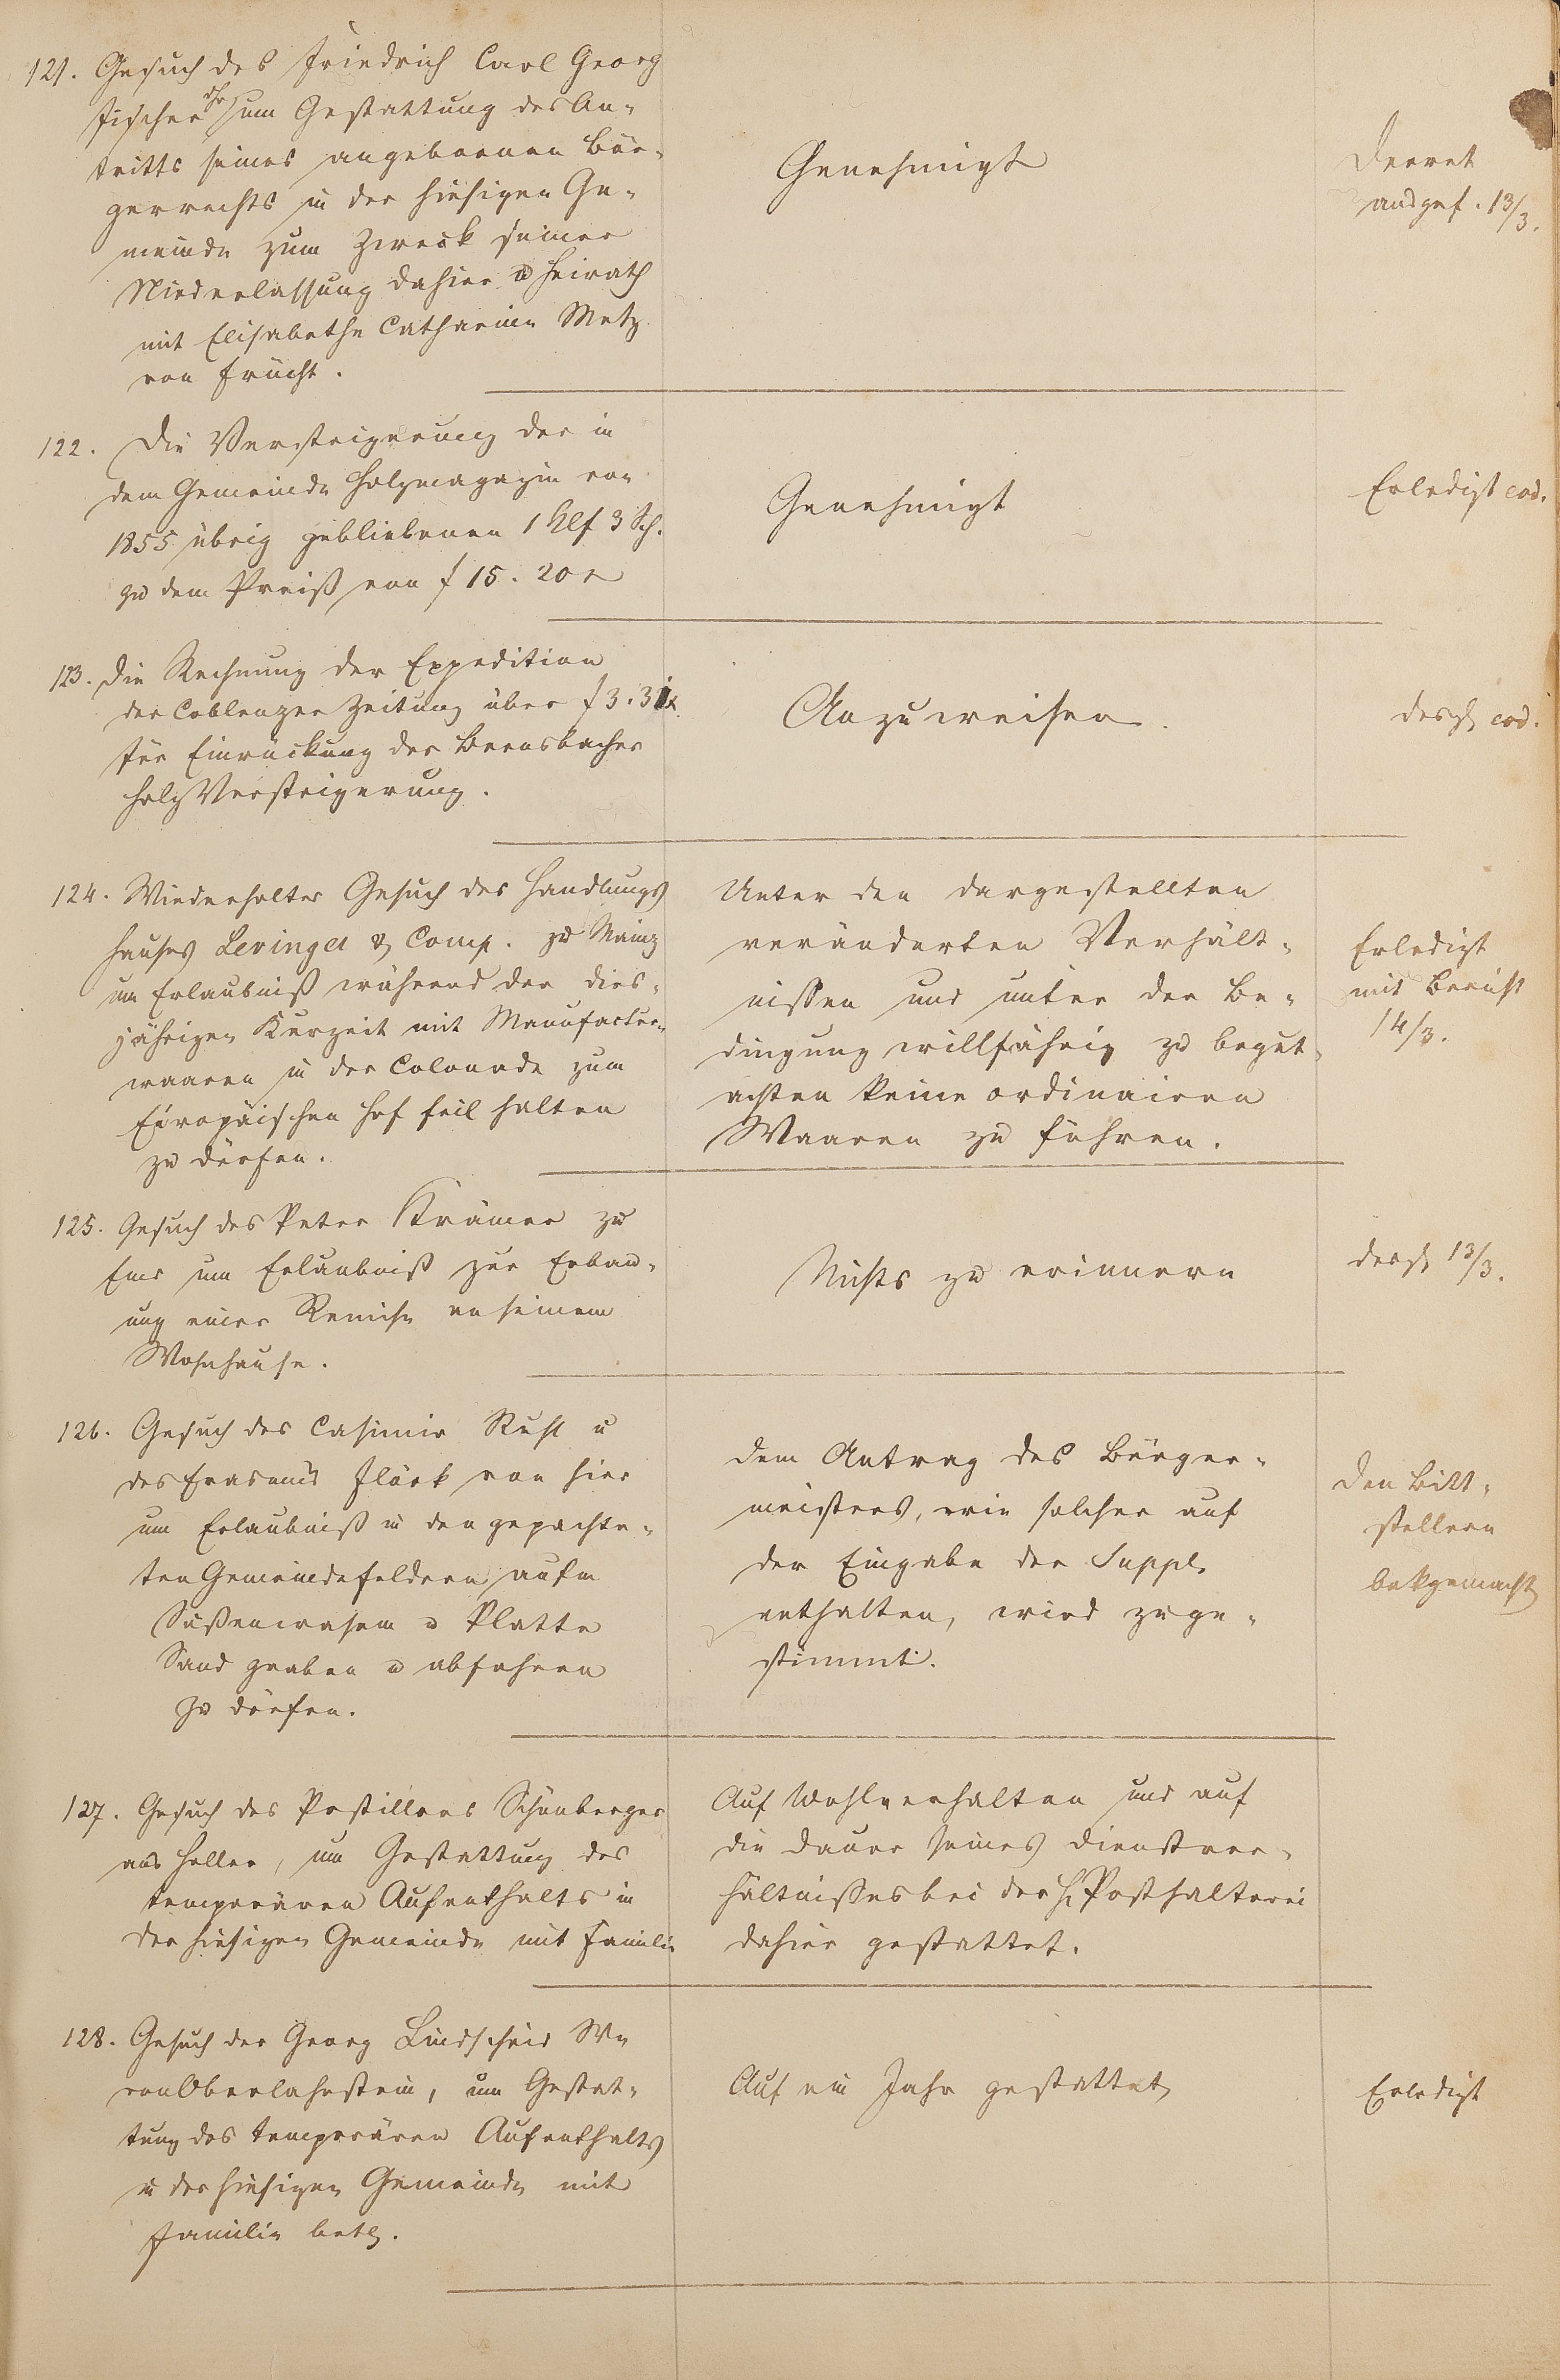 121. Gesuch des Friedrich Carl Georg
Fischer dhr um Gestattung des An-
tritts seines angebornen Bür-
gerrechts in der hiesigen Ge-
meinde zum Zweck seiner
Niederlassung dahier u Heirath
mit Elisabethe Catharine Metz
von Frücht.
Genehmigt
Decret
ausgef. 13/3.
122. Die Versteigerung der in
dem Gemeinde Holzmagazin von
1855 übrig gebliebenen 1 Klf 3 Sch.
zu dem Preiß von f 15. 20 x
Genehmigt
Erledigt eod.
123. Die Rechnung der Expedition
der Coblenzer Zeitung über f 3. 31x
für Einrückung der Bernsbacher
Holz Versteigerung.
Anzuweisen.
desgl eod.
124. Wiederholtes Gesuch des Handlungs
hauses Levinger & Comp. zu Mainz
um Erlaubniß während der dies-
jährigen Kurzeit mit Manufactur-
waaren in der Colonade zum
Europäischen Hof feil halten
zu dürfen.
Unter den dargestellten
veränderten Verhält-
nissen und unter der Be-
dingung willfährig zu begut-
achten keine ordinairen
Waaren zu führen.
Erledigt
mit Bericht
14/3.
125. Gesuch des Peter Krämer zu
Ems um Erlaubniß zur Erbau-
ung einer Remise an seinem
Wohnhause.
Nichts zu erinnern
desgl 13/3.
126. Gesuch des Casimir Ruhl u
des Erasmus Flöck von hier
um Erlaubniß in den gepachte-
ten Gemeindefeldern aufm
Süßenwasem u Platte
Sand graben u abfahren
zu dürfen.
Dem Antrag des Bürger-
meisters, wie solcher auf
der Eingabe der Suppl.
enthalten, wird zuge-
stimmt.
Den Bitt-
stellern
bekgemacht
127. Gesuch des Postillons Schönberger
aus Holler, um Gestattung des
temporären Aufenthalts in
der hiesigen Gemeinde mit Familie
Auf Wohlverhalten und auf
die Dauer seines Dienstver-
hältnisses bei der H. Posthalterei
dahier gestattet.
128. Gesuch der Georg Lindscheid We
von Oberlahnstein, um Gestat-
tung des temporären Aufenthalts
in der hiesigen Gemeinde mit
Familie betr.
Auf ein Jahr gestattet
Erledigt